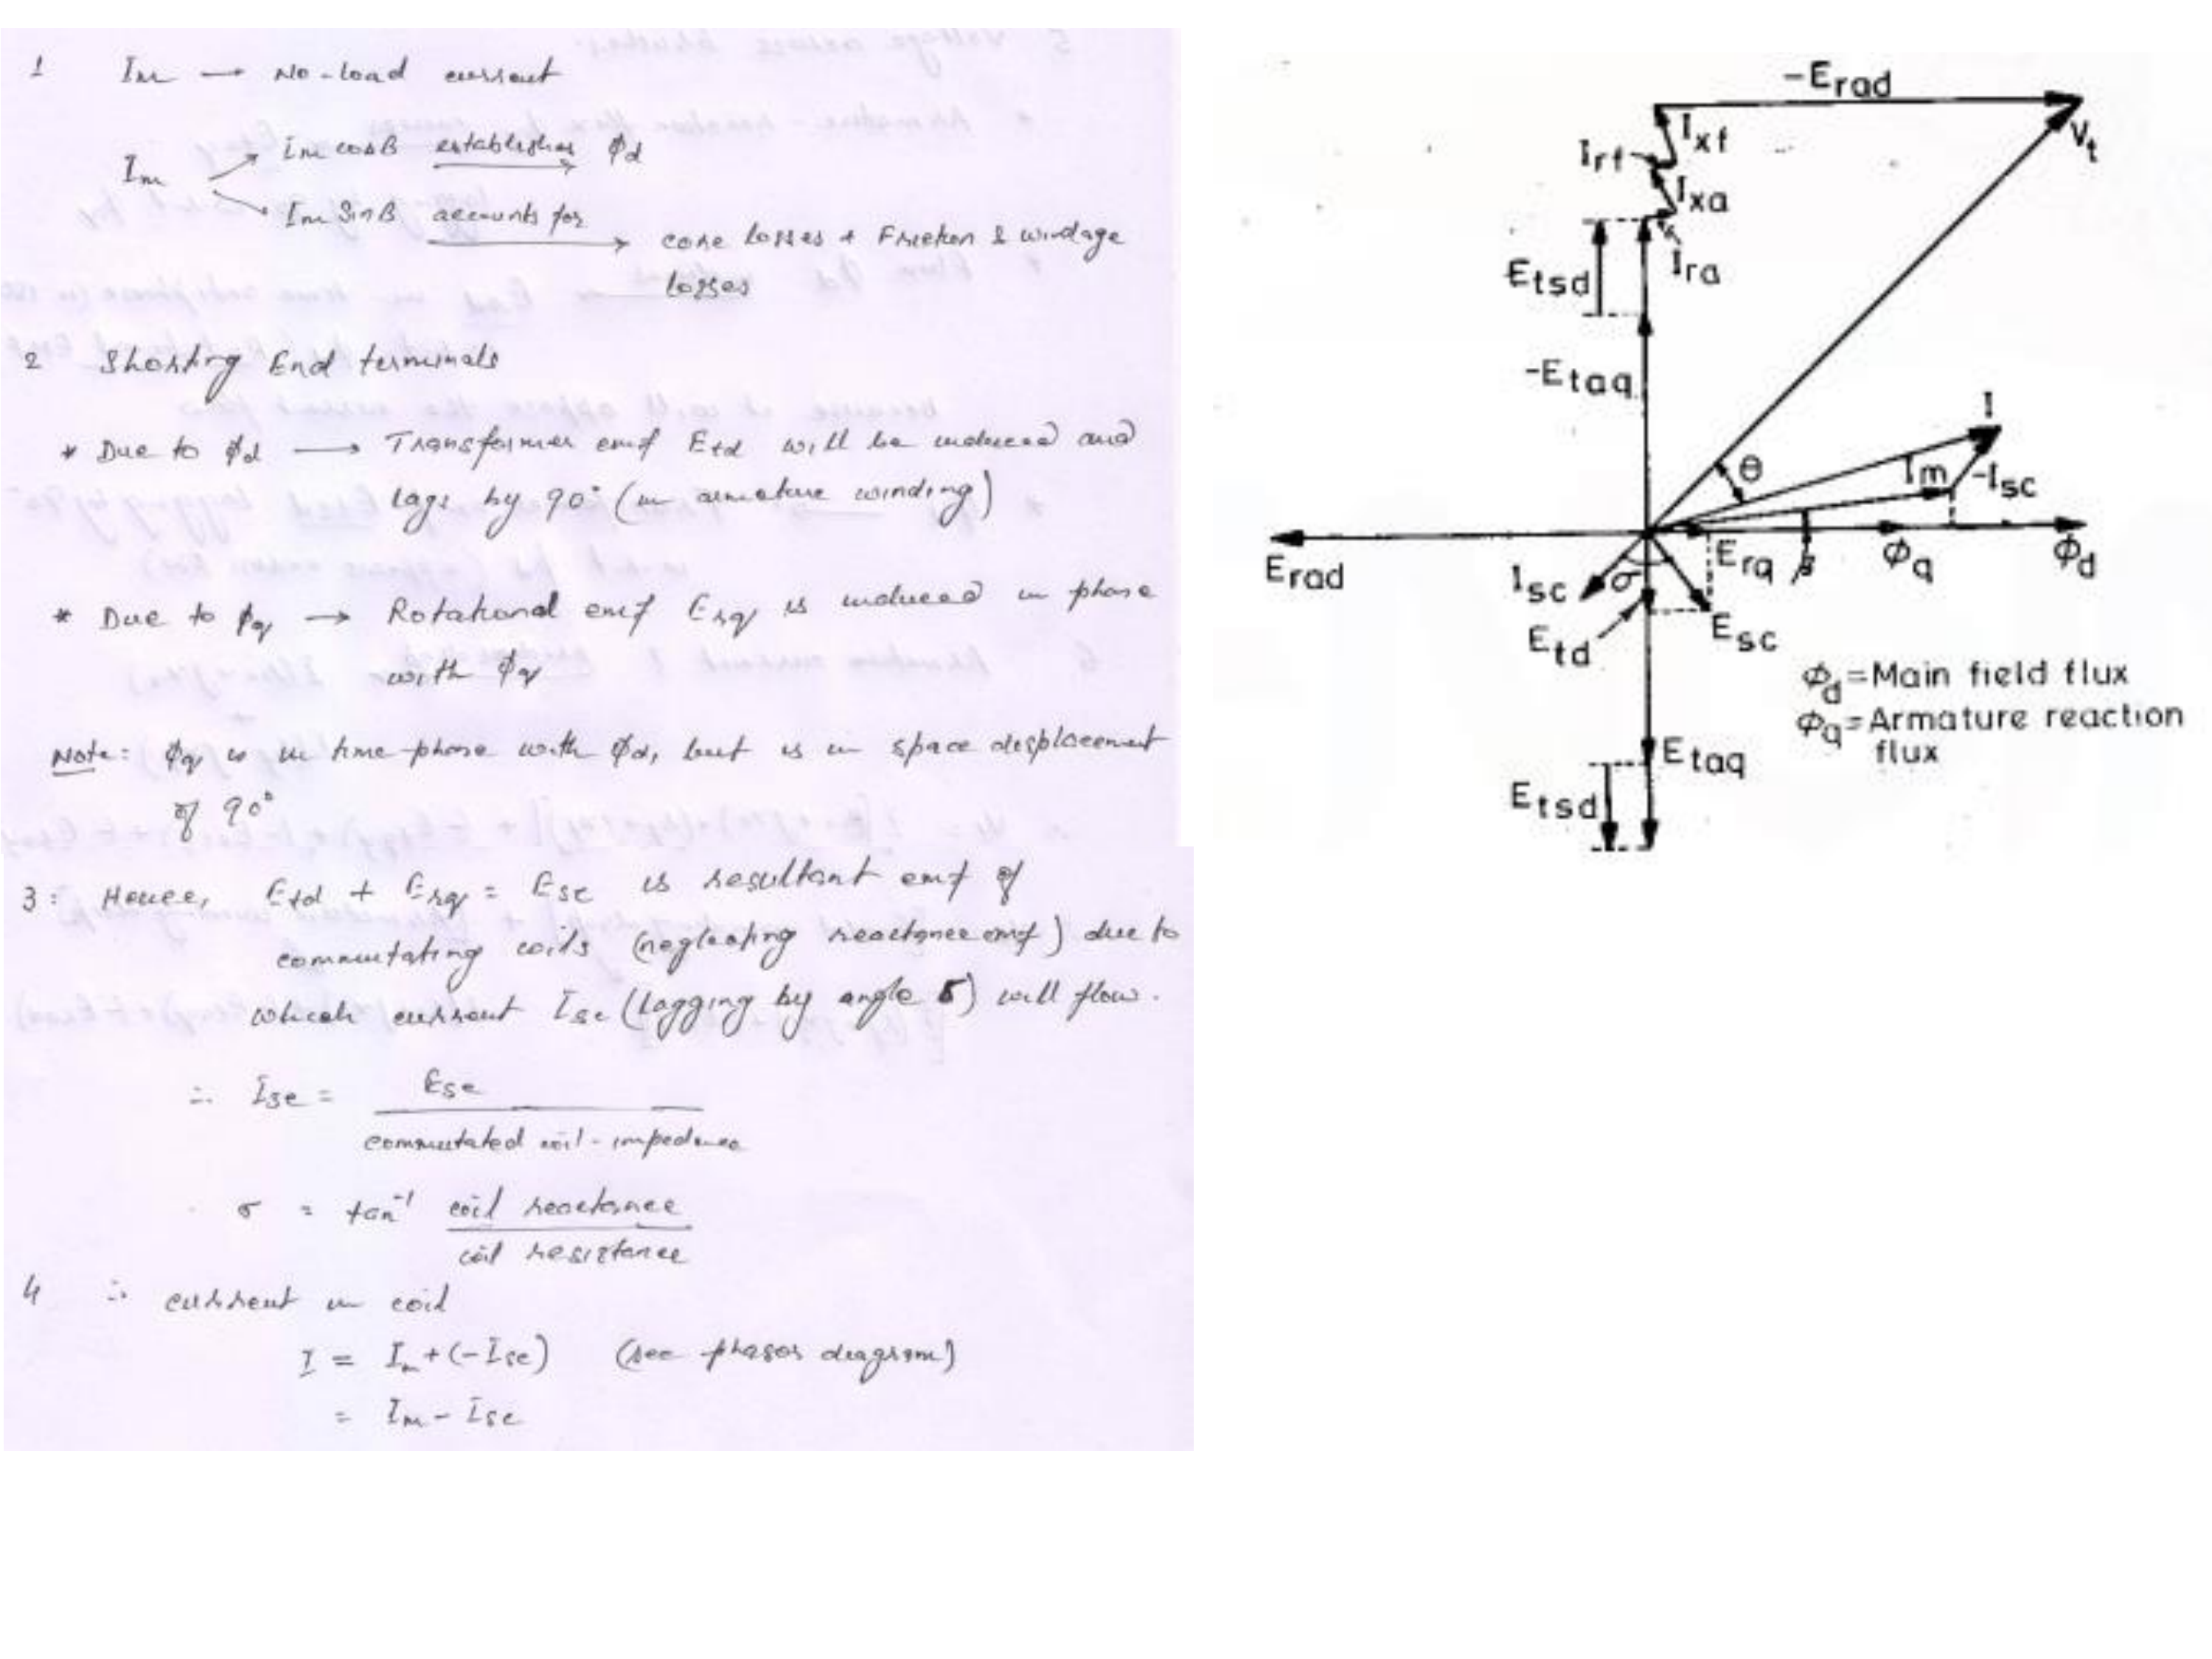 1 Im → No-load current
Im cosβ establishes ϕd
Im
Im Sinβ accounts for
core losses + Friction & windage
losses
2 Shorting End terminals
* Due to ϕd → Transformer emf Etd will be induced and
lags by 90° (in armature winding)
* Due to ϕq → Rotational emf Erq is induced in phase
with ϕq
Note: ϕq is in time-phase with ϕd, but is in space displacement
of 90°
3: Hence, Etd + Erq = Esc is resultant emf of
commutating coils (neglecting reactance emf) due to
which current Isc (lagging by angle σ) will flow.
∴ Isc = Esc
commutated coil-impedence
σ = tan⁻¹ coil reactance
coil resistance
4 ∴ current in coil
I = Im + (-Isc) (see phasor diagram)
= Im - Isc
-Erad
Vt
Ixf
Irf
Ixa
Etsd
Ira
-Etaq
I
θ
Im
-Isc
Erad
Erq
β
ϕq
ϕd
Isc
σ
Etd
Esc
ϕd=Main field flux
ϕq=Armature reaction
flux
Etaq
Etsd